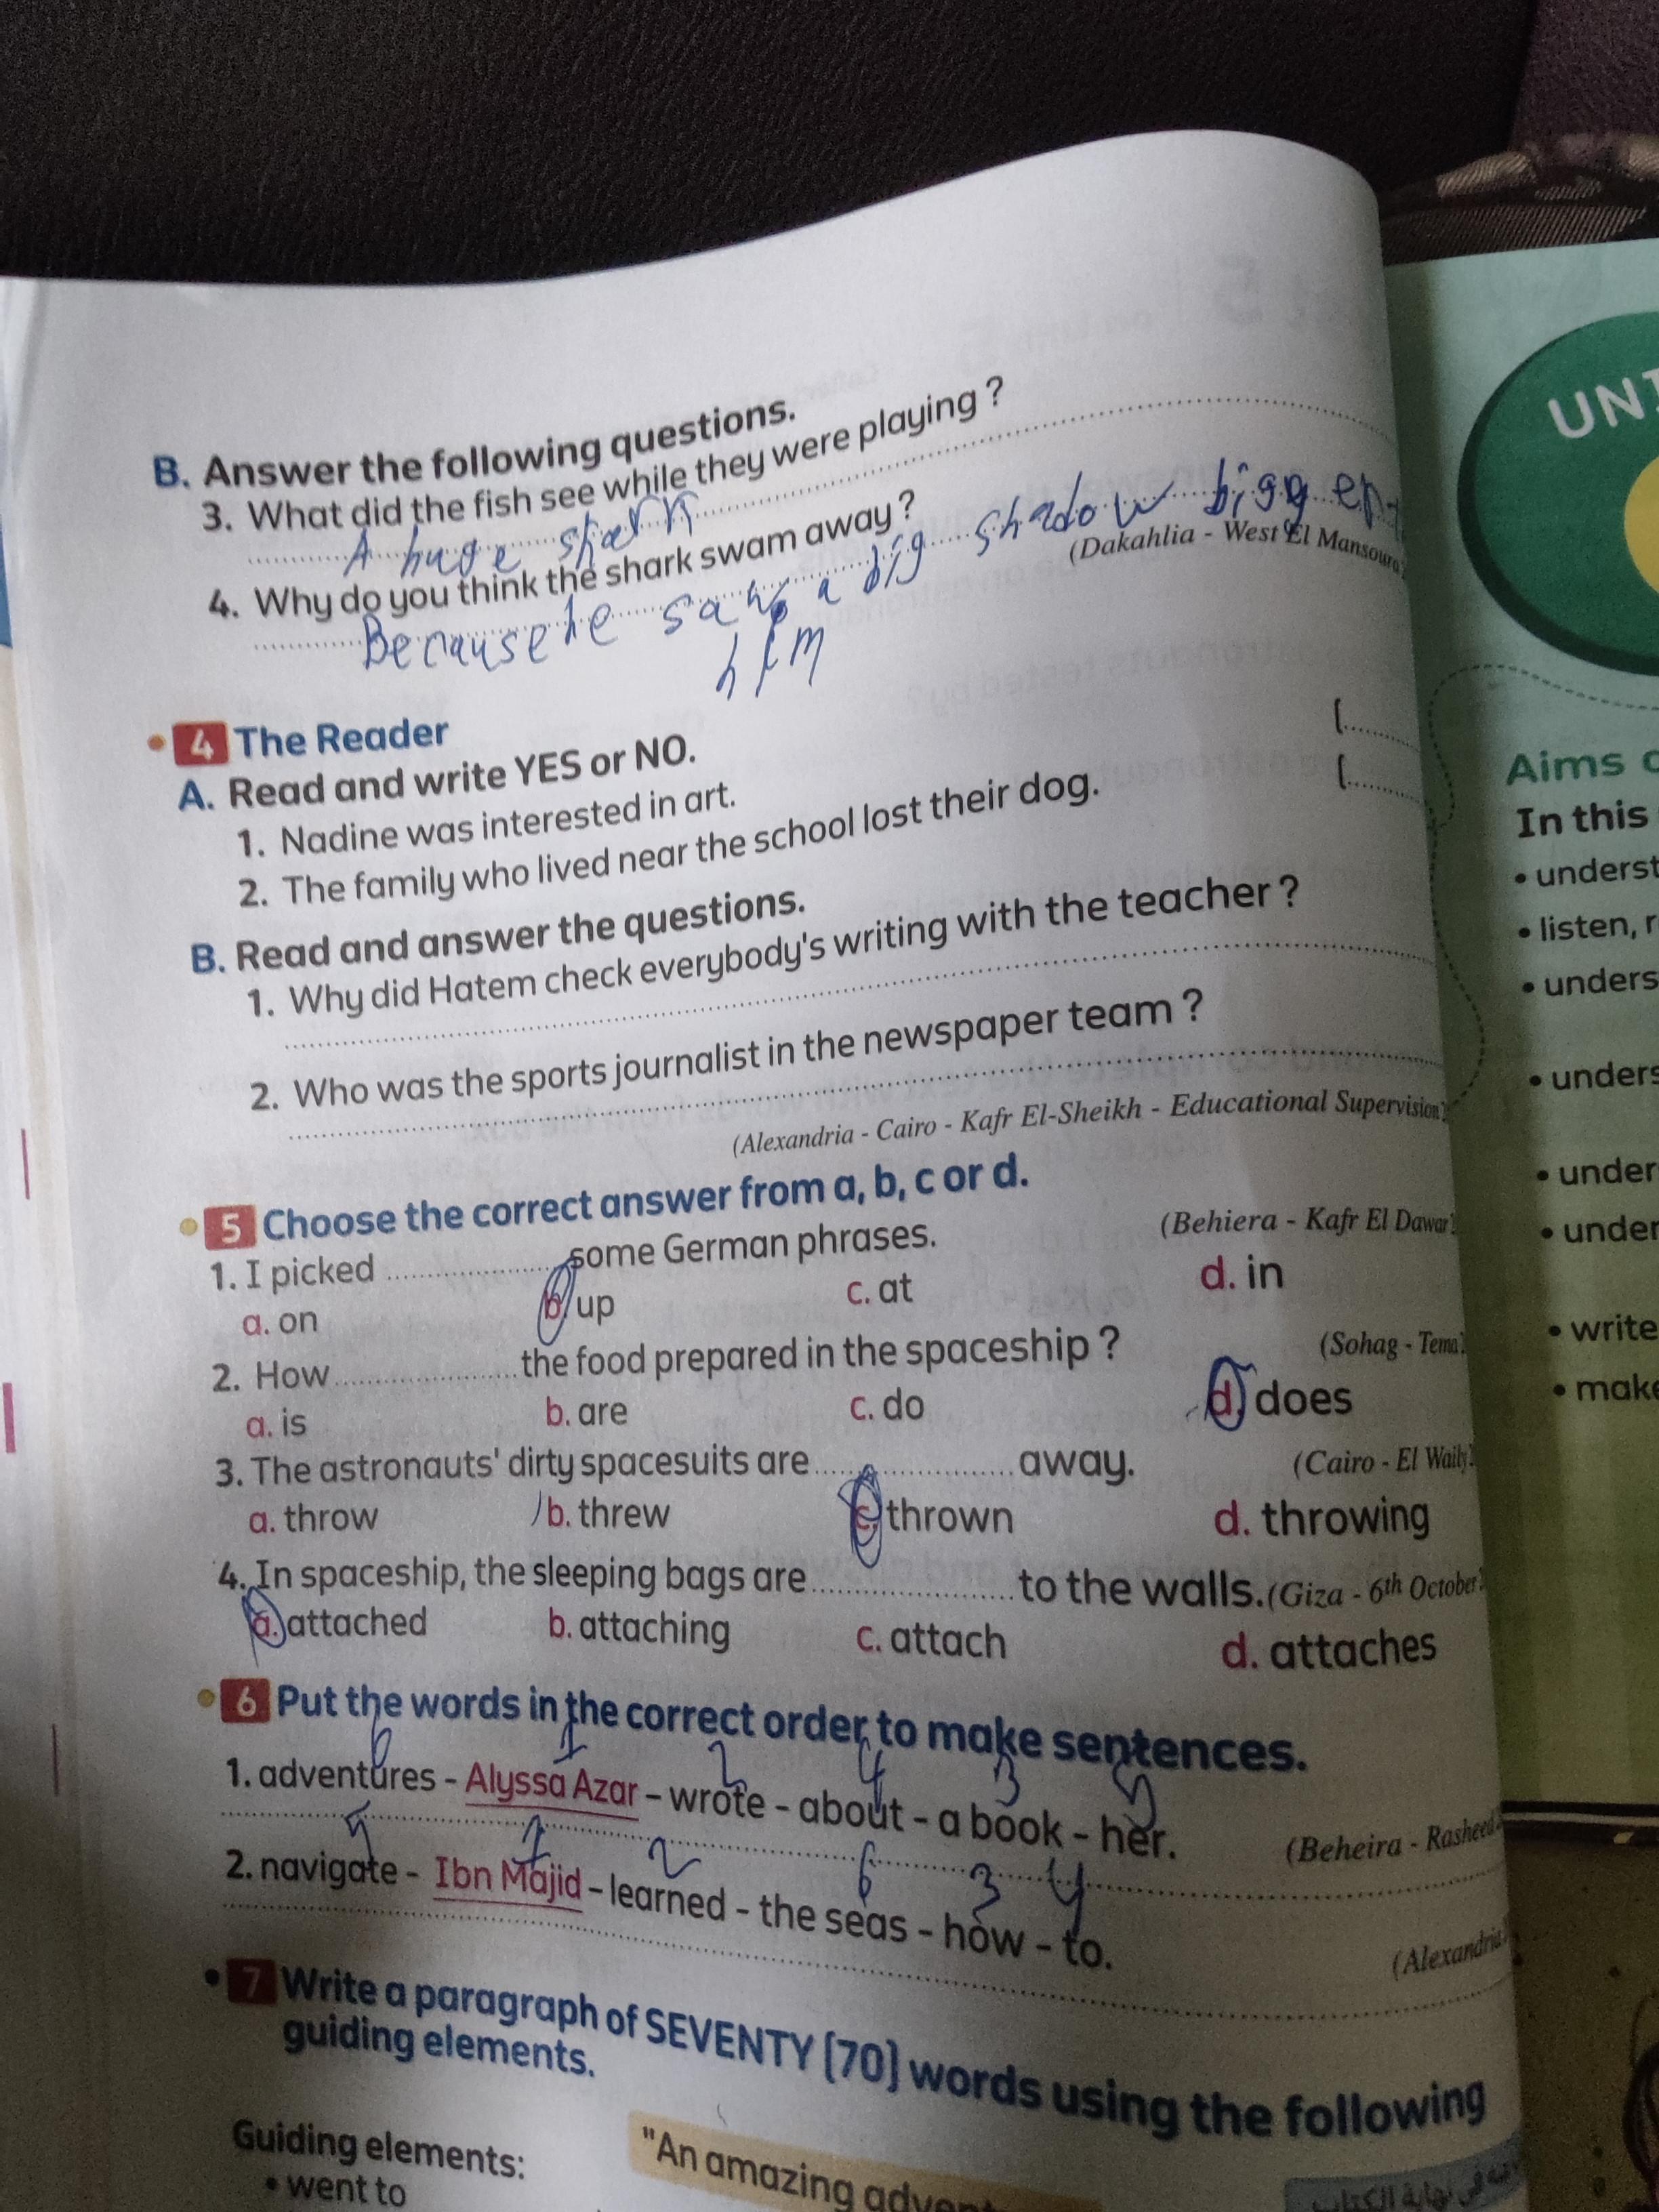 B. Answer the following questions.
3. What did the fish see while they were playing ?
A huge shark
4. Why do you think the shark swam away ?
Because he saw a big shadow bigg
him
(Dakahlia - West El Mansoura)
4 The Reader
A. Read and write YES or NO.
1. Nadine was interested in art. (........
2. The family who lived near the school lost their dog. (........
B. Read and answer the questions.
1. Why did Hatem check everybody's writing with the teacher ?
2. Who was the sports journalist in the newspaper team ?
(Alexandria - Cairo - Kafr El-Sheikh - Educational Supervision)
5 Choose the correct answer from a, b, c or d.
1. I picked .................... some German phrases. (Behiera - Kafr El Dawar)
a. on b. up c. at d. in
2. How .................... the food prepared in the spaceship ? (Sohag - Tema)
a. is b. are c. do d. does
3. The astronauts' dirty spacesuits are .................... away. (Cairo - El Waily)
a. throw b. threw c. thrown d. throwing
4. In spaceship, the sleeping bags are .................... to the walls. (Giza - 6th October)
a. attached b. attaching c. attach d. attaches
6 Put the words in the correct order to make sentences.
6 1 2 4 3 5
1. adventures - Alyssa Azar - wrote - about - a book - her. (Beheira - Rasheed)
5 1 2 6 3 4
2. navigate - Ibn Majid - learned - the seas - how - to. (Alexandria)
7 Write a paragraph of SEVENTY (70) words using the following
guiding elements.
"An amazing
Guiding elements:
• went to
UNI
Aims
In this
• underst
• listen, r
• unders
• unders
• under
• under
• write
• make